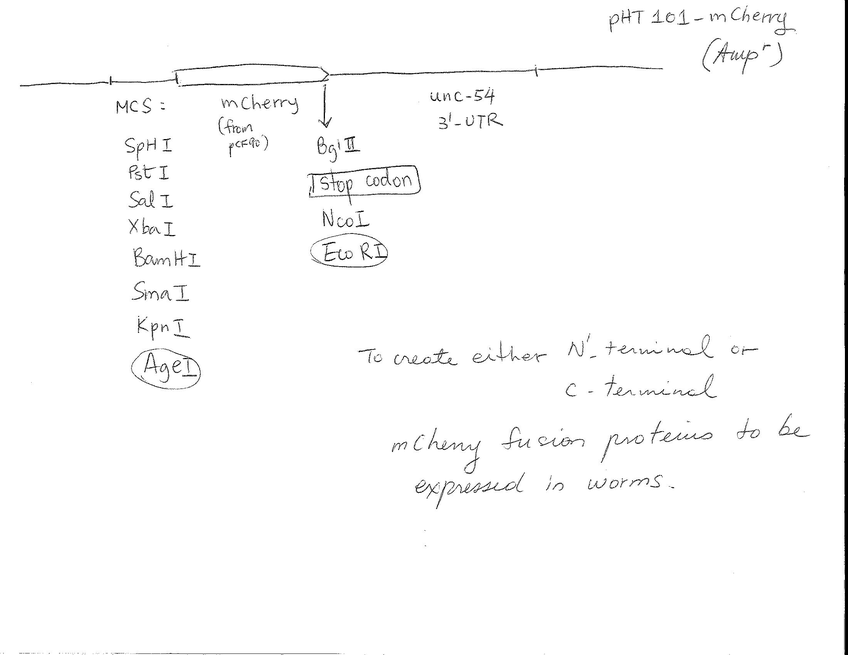 pHT 101-mCherry
(Ampʳ)
MCS:
SpH I
Pst I
Sal I
Xba I
BamH I
Sma I
Kpn I
Age I
mCherry
(from
pCF90)
Bgl II
Stop codon
Nco I
Eco RI
unc-54
3'-UTR
To create either N'-terminal or
C-terminal
mCherry fusion proteins to be
expressed in worms.